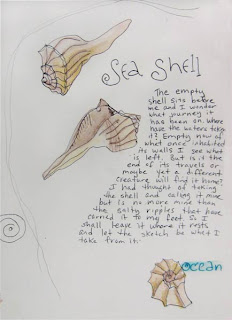 Sea Shell
The empty
shell sits before
me and I wonder
what journey it
has been on. Where
have the waters taken
it? Empty now of
what once inhabited
its walls I see what
is left. But is it the
end of its travels or
maybe yet a different
creature will find it home?
I had thought of taking
the shell and calling it mine
but is no more mine than
the salty ripples that have
carried it to my feet. So I
shall leave it where it rests
and let the sketch be what I
take from it.
Ocean